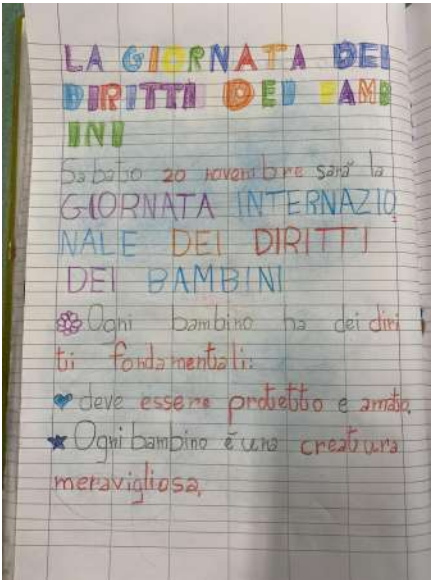 LA GIORNATA DEI
DIRITTI DEI BAMB
INI
Sabato 20 novembre sarà la
GIORNATA INTERNAZIO
NALE DEI DIRITTI
DEI BAMBINI
Ogni bambino ha dei diri
tti fondamentali:
deve essere protetto e amato.
Ogni bambino è una creatura
meravigliosa.